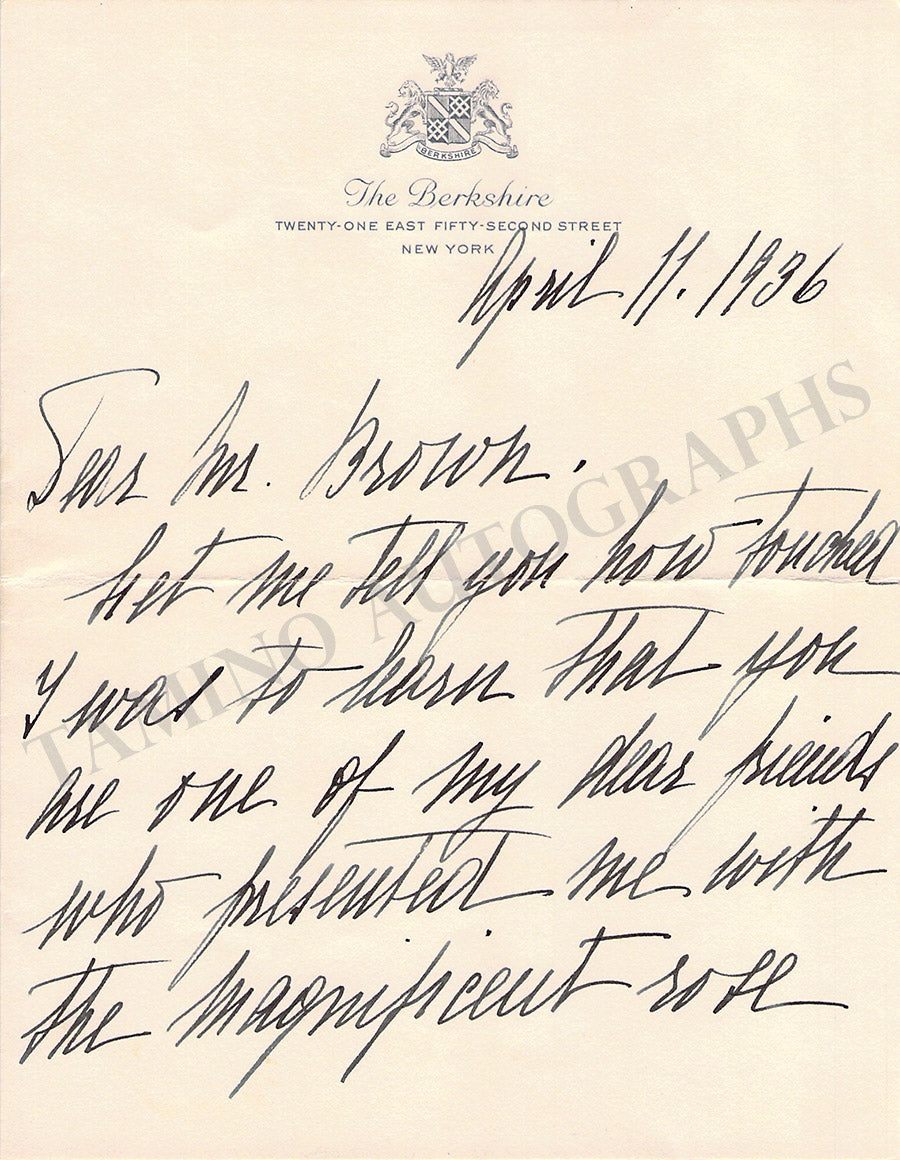 BERKSHIRE
The Berkshire
TWENTY-ONE EAST FIFTY-SECOND STREET
NEW YORK
April 11. 1936
Dear Mr. Brown.
Let me tell you how touched
I was to learn that you
are one of my dear friends
who presented me with
the magnificent rose
TAMINO AUTOGRAPHS